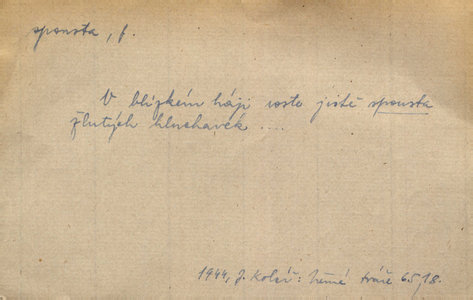 spousta, f.
V blízkém háji roste jistě spousta
žlutých hluchavek ....
1944, J. Kolář: Němé tváře 65/18.